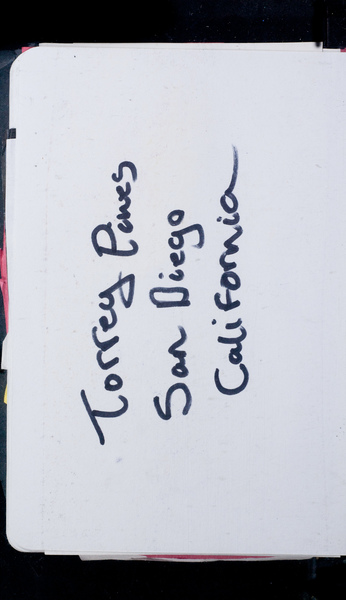 Torrey Pines
San Diego
California